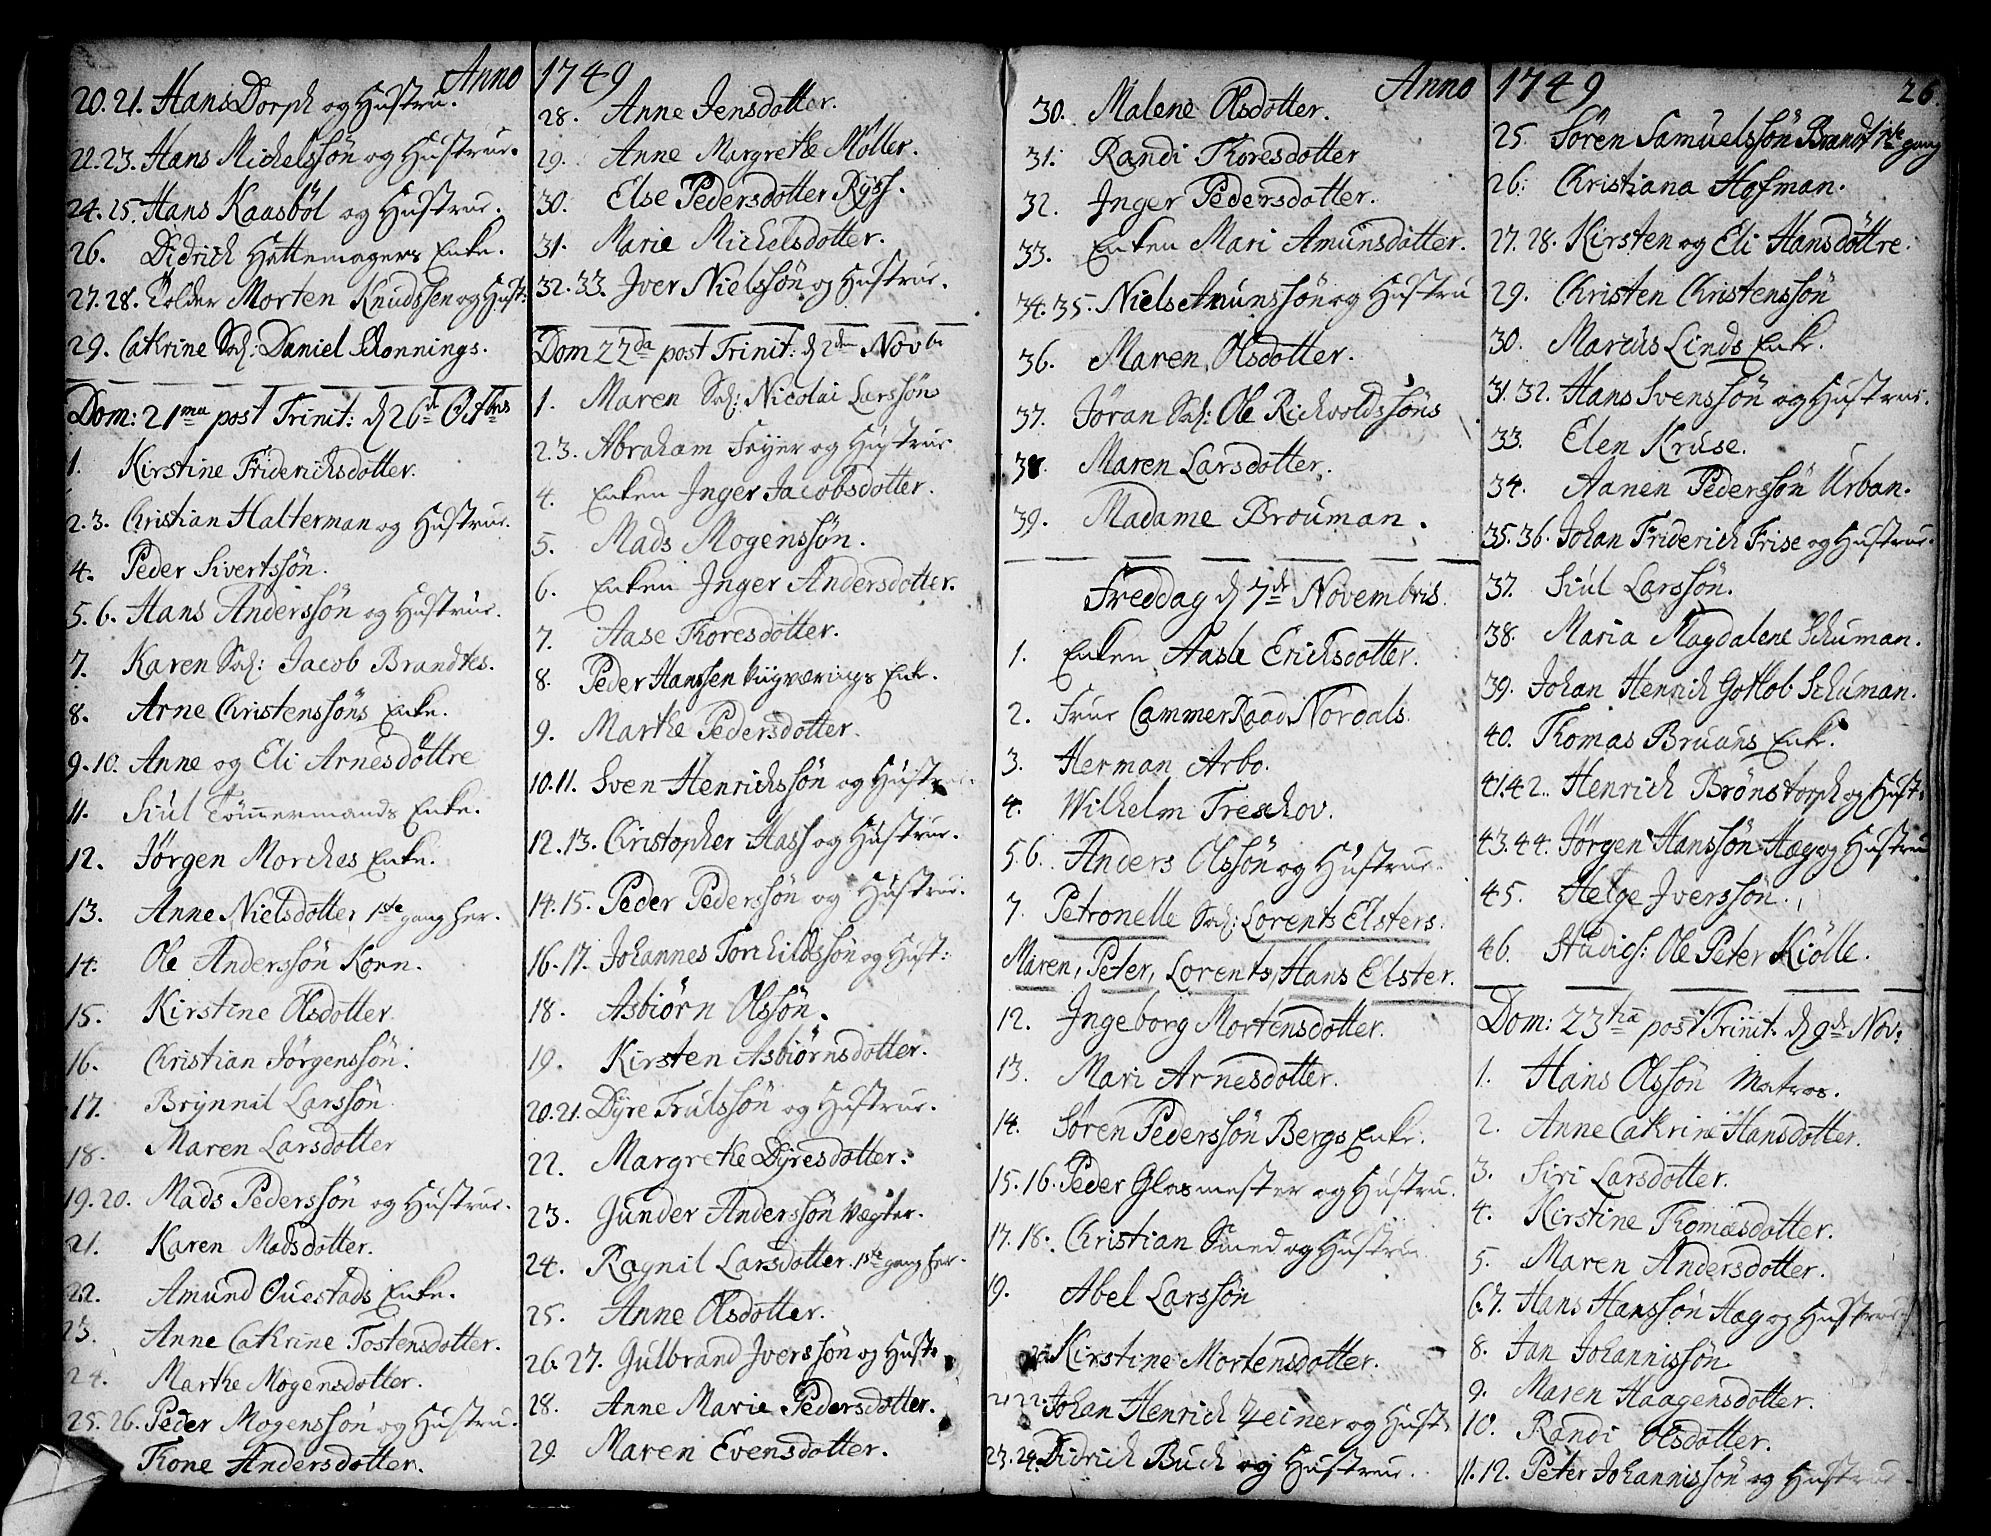 Anno
20. 21. Hans Dorph og Hustru.
22. 23. Hans Michelssøn og Hustrue.
24. 25. Hans Kaasbøl og Hustrue.
26. Didrich Hattemagers Enke.
27. 28. Colder Morten Knudssen og Hust:
29. Cathrine Sal: Daniel Schonnings.
Dom: 21ma post Trinit: d 26de Octbris
1. Kirstine Friderichsdotter.
2. 3. Christian Halterman og Hustrue.
4. Peder Sivertssøn.
5. 6. Hans Anderssøn og Hustrue.
7. Karen Sal: Jacob Brandtes.
8. Arne Christenssøns Enke.
9. 10. Anne og Eli Arnesdøttre
11. Siul Tømmermands Enke.
12. Jørgen Morches Enke.
13. Anne Nielsdotter 1ste gang her.
14. Ole Anderssøn Korn.
15. Kirstine Olsdotter.
16. Christian Jørgenssøn.
17. Brynnil Larssøn
18. Maren Larsdotter
19. 20. Mads Pederssøn og Hustrue.
21. Karen Madsdotter.
22. Amund Ouestads Enke.
23. Anne Cathrine Tostensdotter.
24. Marthe Mogensdotter.
25. 26. Peder Mogenssøn og Hustru.
Thone Andersdotter.
1749
28. Anne Jensdotter.
29. Anne Margrethe Møller.
30. Else Pedersdotter Ryss.
31. Marie Michelsdotter.
32. 33. Iver Nielssøn og Hustrue.
Dom 22da post Trinit: d 2den Novb.
1. Maren Sal: Nicolai Larssøns
2. 3. Abraham Feyer og Hustrue.
4. Enken Inger Jacobsdotter.
5. Mads Mogenssøn.
6. Enken Inger Andersdotter.
7. Aase Thoresdotter.
8. Peder Hanssen Enke.
9. Marthe Pedersdotter.
10. 11. Sven Henrichssøn og Hustrue
12. 13. Christopher Hass og Hustrue.
14. 15. Peder Pederssøn og Hustrue.
16. 17. Johannes Torchildssøn og Hust:
18. Asbiørn Olssøn.
19. Kirsten Asbiørnsdotter.
20. 21. Dyre Trulssøn og Hustrue.
22. Margrethe Dyresdotter.
23. Gunder Anderssøn Vægter.
24. Ragnil Larsdotter. 1ste gang her.
25. Anne Olsdotter.
26. 27. Gulbrand Iverssøn og Hust.
28. Anne Marie Pedersdotter.
29. Maren Evensdotter.
Anno
30. Malene Olsdotter.
31. Randi Thoresdotter
32. Inger Pedersdotter.
33. Enken Mari Amunsdotter.
34. 35. Niels Amunssøn og Hustru
36. Maren Olsdotter.
37. Jøran Sal: Ole Richvoldssøns
38. Maren Larsdotter.
39. Madame Brouman.
Freddag d 7de Novembris.
1. Enken Aasle Erichsdotter.
2. Frue CammerRaad Nordals.
3. Herman Arbo.
4. Wilhelm Treschov.
5. 6. Anders Olssøn og Hustrue.
7. Petronelle Sal: Lorents Elsters.
Maren, Peter, Lorents, Hans Elster.
12. Ingeborg Mortensdotter.
13. Mari Arnesdotter.
14. Søren Pederssøn Bergs Enke.
15. 16. Peder Glasmester og Hustru.
17. 18. Christian Smed og Hustrue
19. Abel Larssøn
Kirstine Mortensdotter.
21 22. Johan Henrich Zeiner og Hust.
23. 24. Didrich Buch og Hustrue.
1749 26.
25. Søren Samuelssøn Brandt 1ste gang
26. Christiana Hofman.
27. 28. Kirsten og Eli Hansdøttre.
29. Christen Christenssøn
30. Marcus Linds Enke.
31. 32. Hans Svenssøn og Hustrue.
33. Elen Kruse.
34. Aanen Pederssøn Urban.
35. 36. Johan Friderich Frise og Hustrue.
37. Siul Larssøn.
38. Maria Magdalene Schuman.
39. Johan Henrich Gotlob Schuman.
40. Thomas Bruuns Enke.
41. 42. Henrich Brønstorph og Hust.
43. 44. Jørgen Hanssøn Hag og Hustru
45. Helge Iverssøn.
46. Studios: Ole Peter Kiølle.
Dom: 23tia post Trinit. d 9de Nov:
1. Hans Olssøn Matros.
2. Anne Cathrine Hansdotter.
3. Siri Larsdotter.
4. Kirstine Thomæsdotter.
5. Maren Andersdotter.
6. 7. Hans Hanssøn Hag og Hustrue
8. Jan Johannissøn
9. Maren Haagensdotter.
10. Randi Olsdotter.
11. 12. Peter Johannissøn og Hustrue